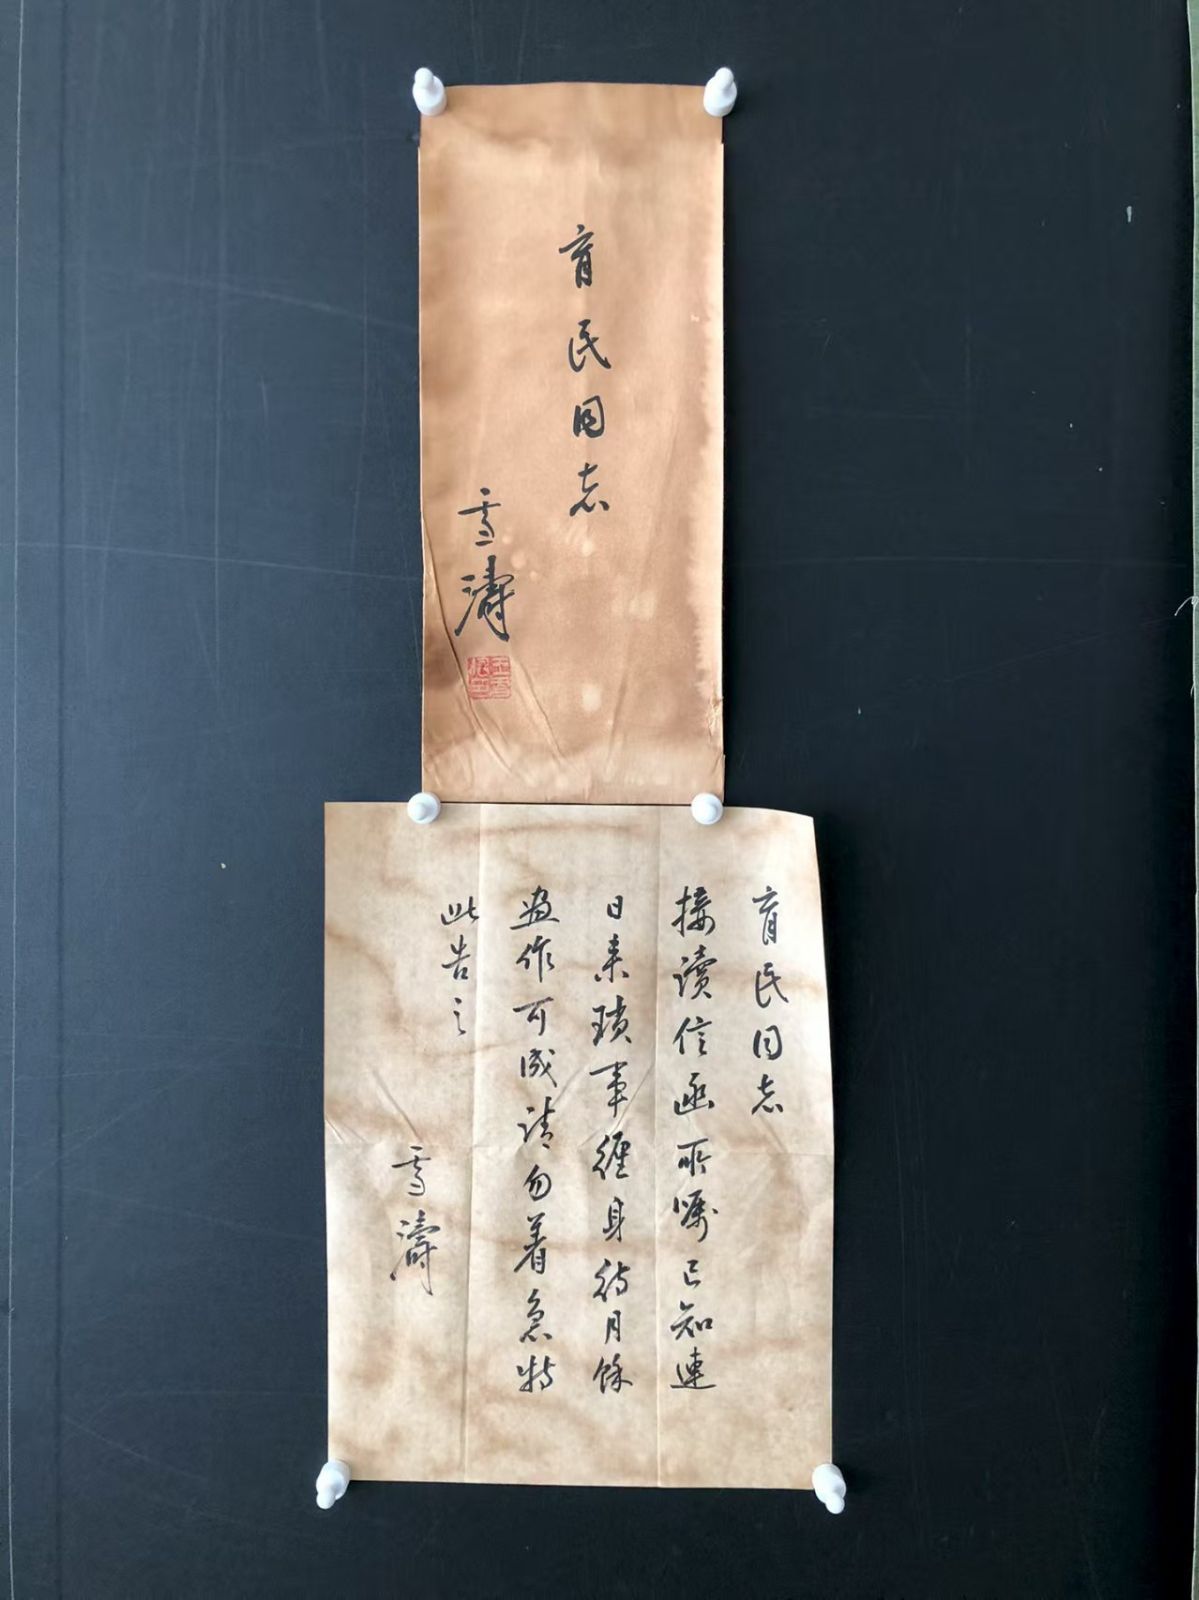 育民同志
雪濤
育民同志
接读信函所嘱已知連
日来琐事纏身待月餘
画作可成请勿着急特
此告之
雪濤